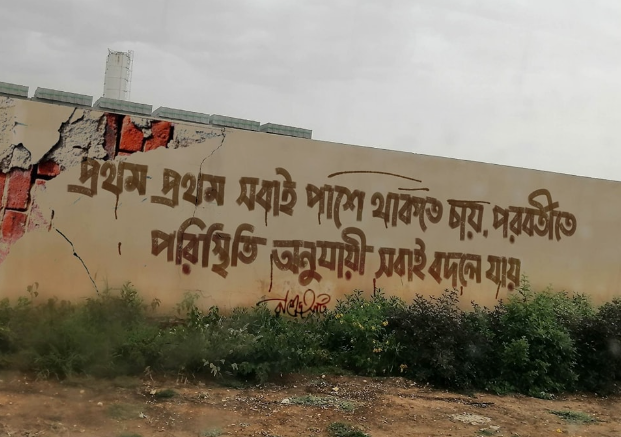 প্রথম প্রথম সবাই পাশে থাকতে চায়, পরবর্তীতে
পরিস্থিতি অনুযায়ী সবাই বদলে যায়